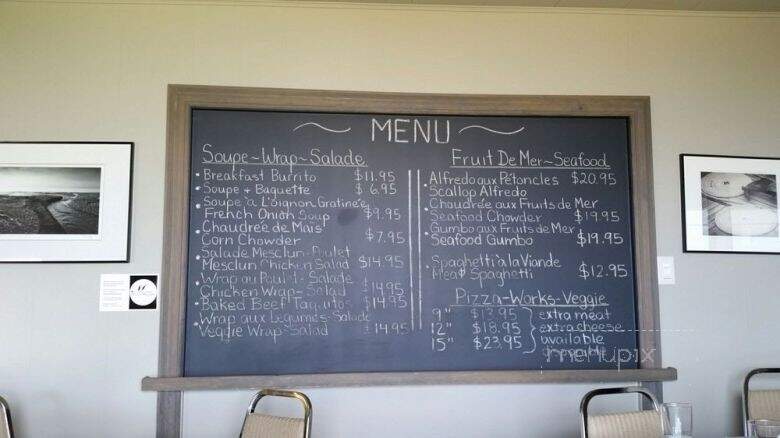 MENU
Soupe~Wrap~Salade
• Breakfast Burrito $11.95
• Soupe + Baguette $ 6.95
• Soupe à L'oignon Gratinée
French Onion Soup $9.95
• Chaudrée de Maïs
Corn Chowder $7.95
• Salade Mesclun-Poulet
Mesclun Chicken Salad $14.95
• Wrap au Poulet - Salade
Chicken Wrap-Salad $14.95
• Baked Beef Taquitos $14.95
• Wrap aux Legumes-Salade
Veggie Wrap-Salad $14.95
Fruit De Mer~Seafood
• Alfredo aux Pétoncles $20.95
Scallop Alfredo
• Chaudrée aux Fruits de Mer
Seafood Chowder $19.95
• Gumbo aux Fruits de Mer
Seafood Gumbo $19.95
• Spaghetti à la Viande
Meat Spaghetti $12.95
Pizza-Works-Veggie
9" $13.95 extra meat
12" $18.95 extra cheese
15" $23.95 available
menupix